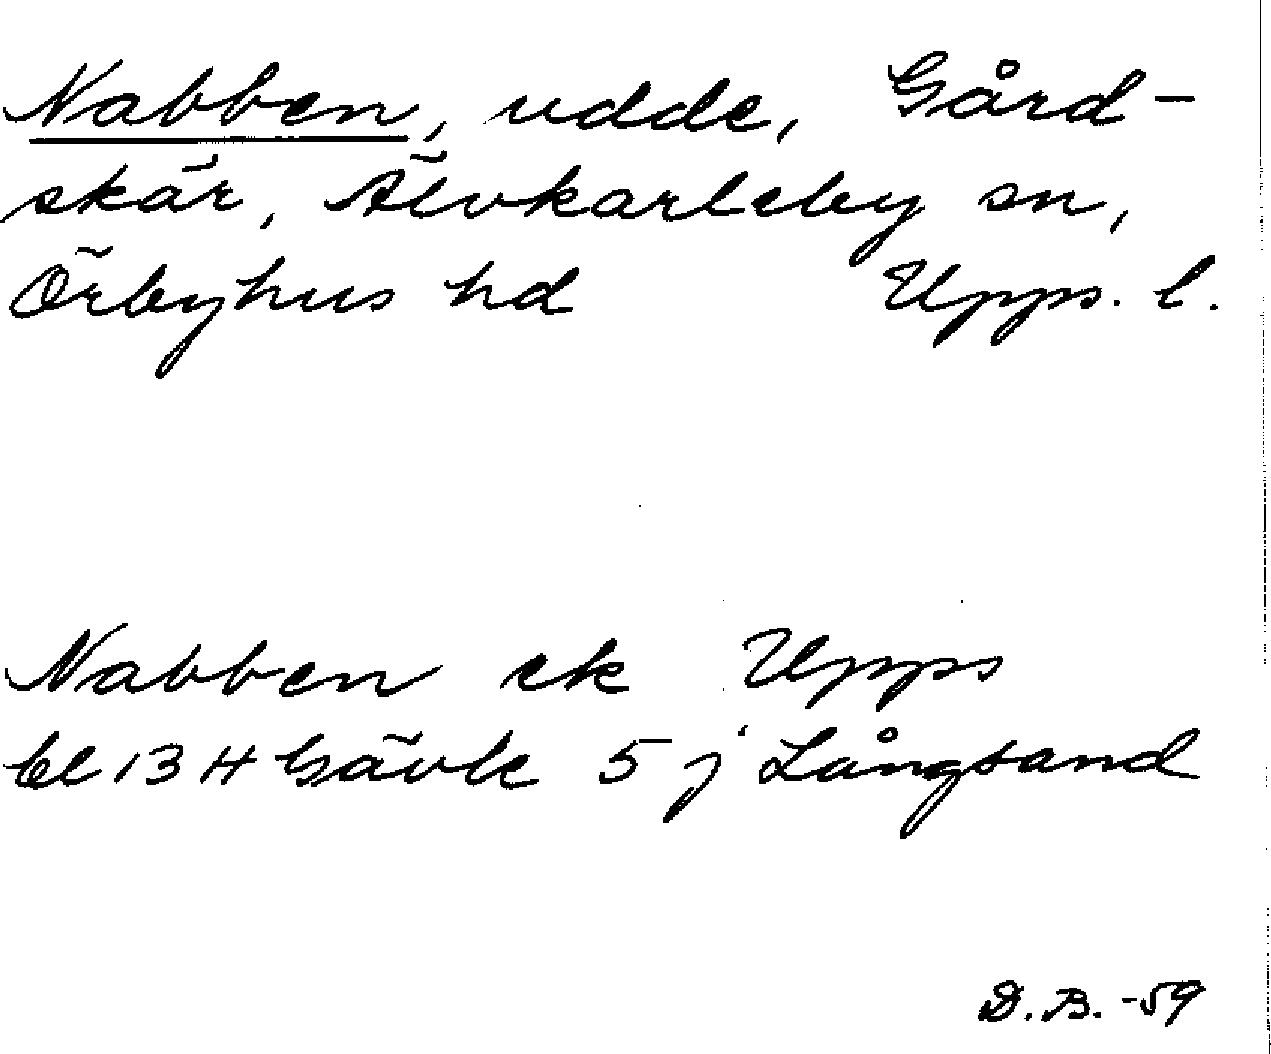 Nabben, udde, Gård-
skär, Älvkarleby sn,
Örbyhus hd Upps. l.
Nabben ek Upps
bl 13 H Gävle 5 j Långsand
D.B. -59